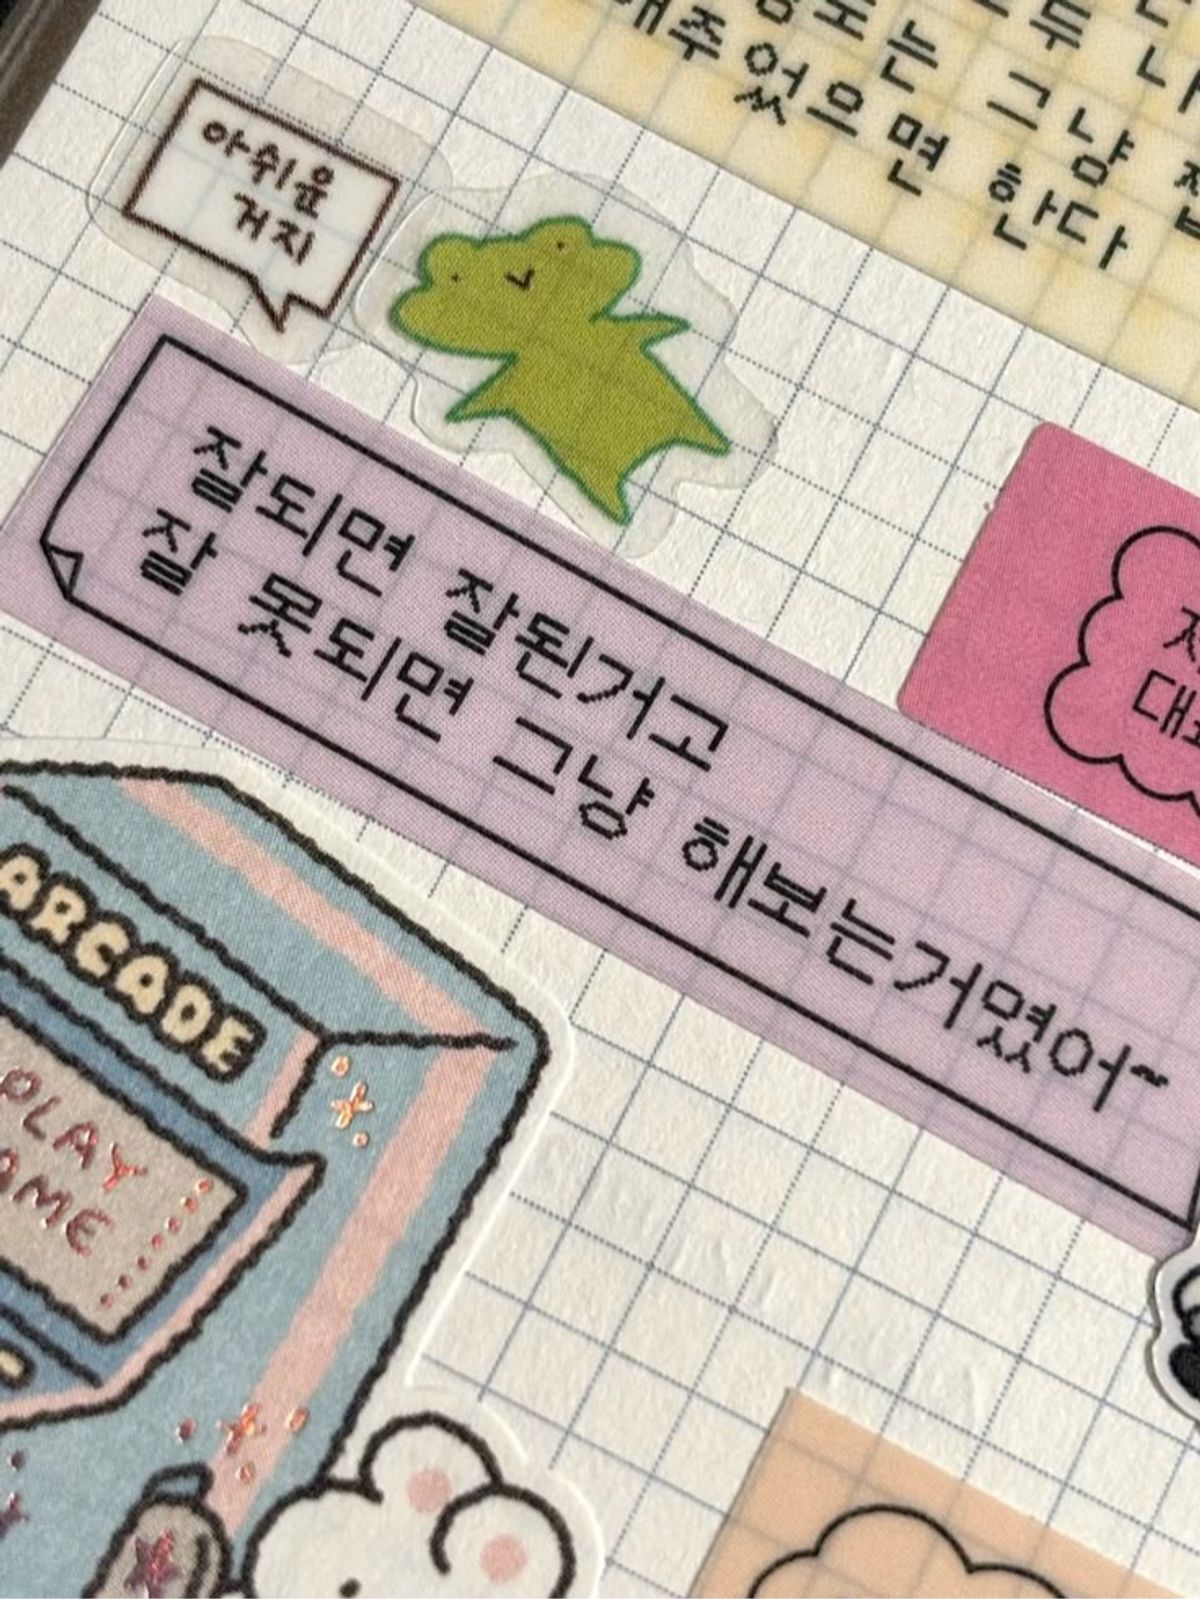 는 그냥
해주었으면 한다
아쉬운
거지
잘되면 잘된거고
잘 못되면 그냥 해보는거였어~
ARCADE
PLAY